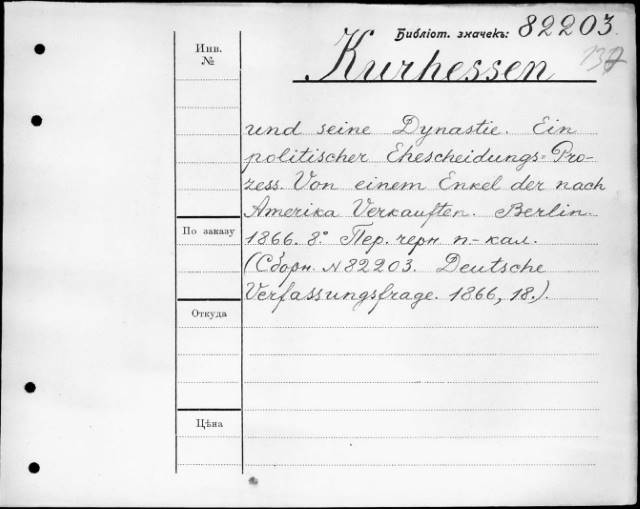 Библіот. значекъ: 82203.
137
Инв.
№
Kurhessen
und seine Dynastie. Ein
politischer Ehescheidungs=Pro-
zess. Von einem Enkel der nach
Amerika Verkauften. Berlin.
По заказу
1866. 8° Пер. черн. п-кал.
(Сборн. N 82203. Deutsche
Verfassungsfrage. 1866, 18.).
Откуда
Цѣна